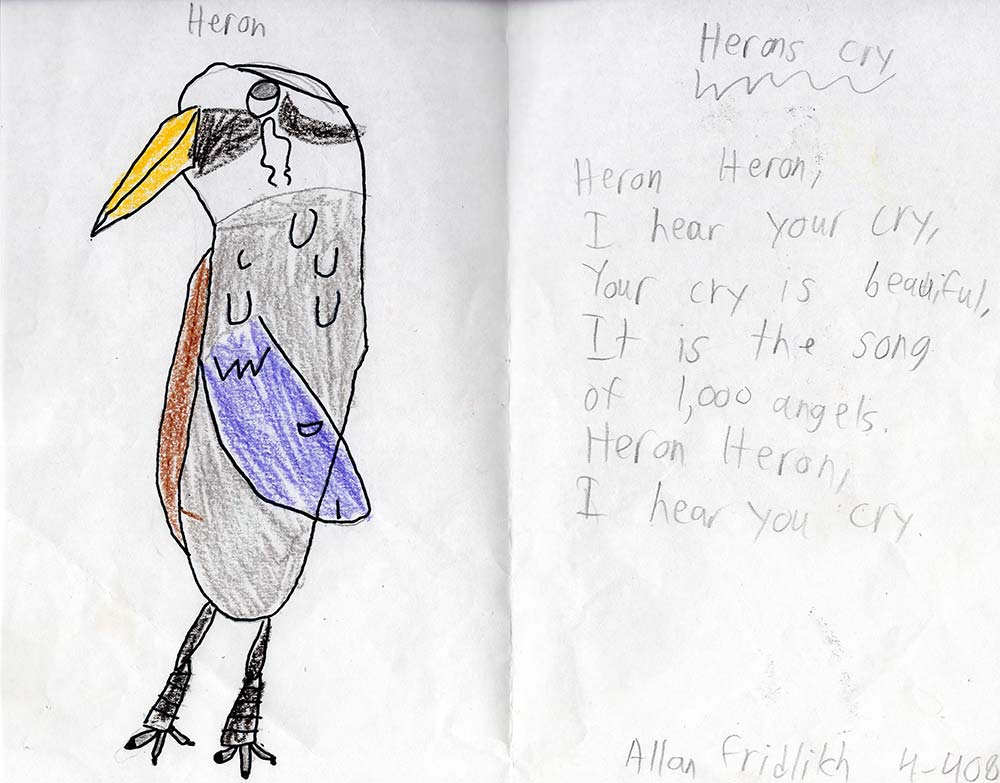 Heron
Herons cry
Heron Heron,
I hear your cry,
Your cry is beauiful,
It is the song
of 1,000 angels.
Heron Heron,
I hear you cry.
Allan Fridlikh 4-408